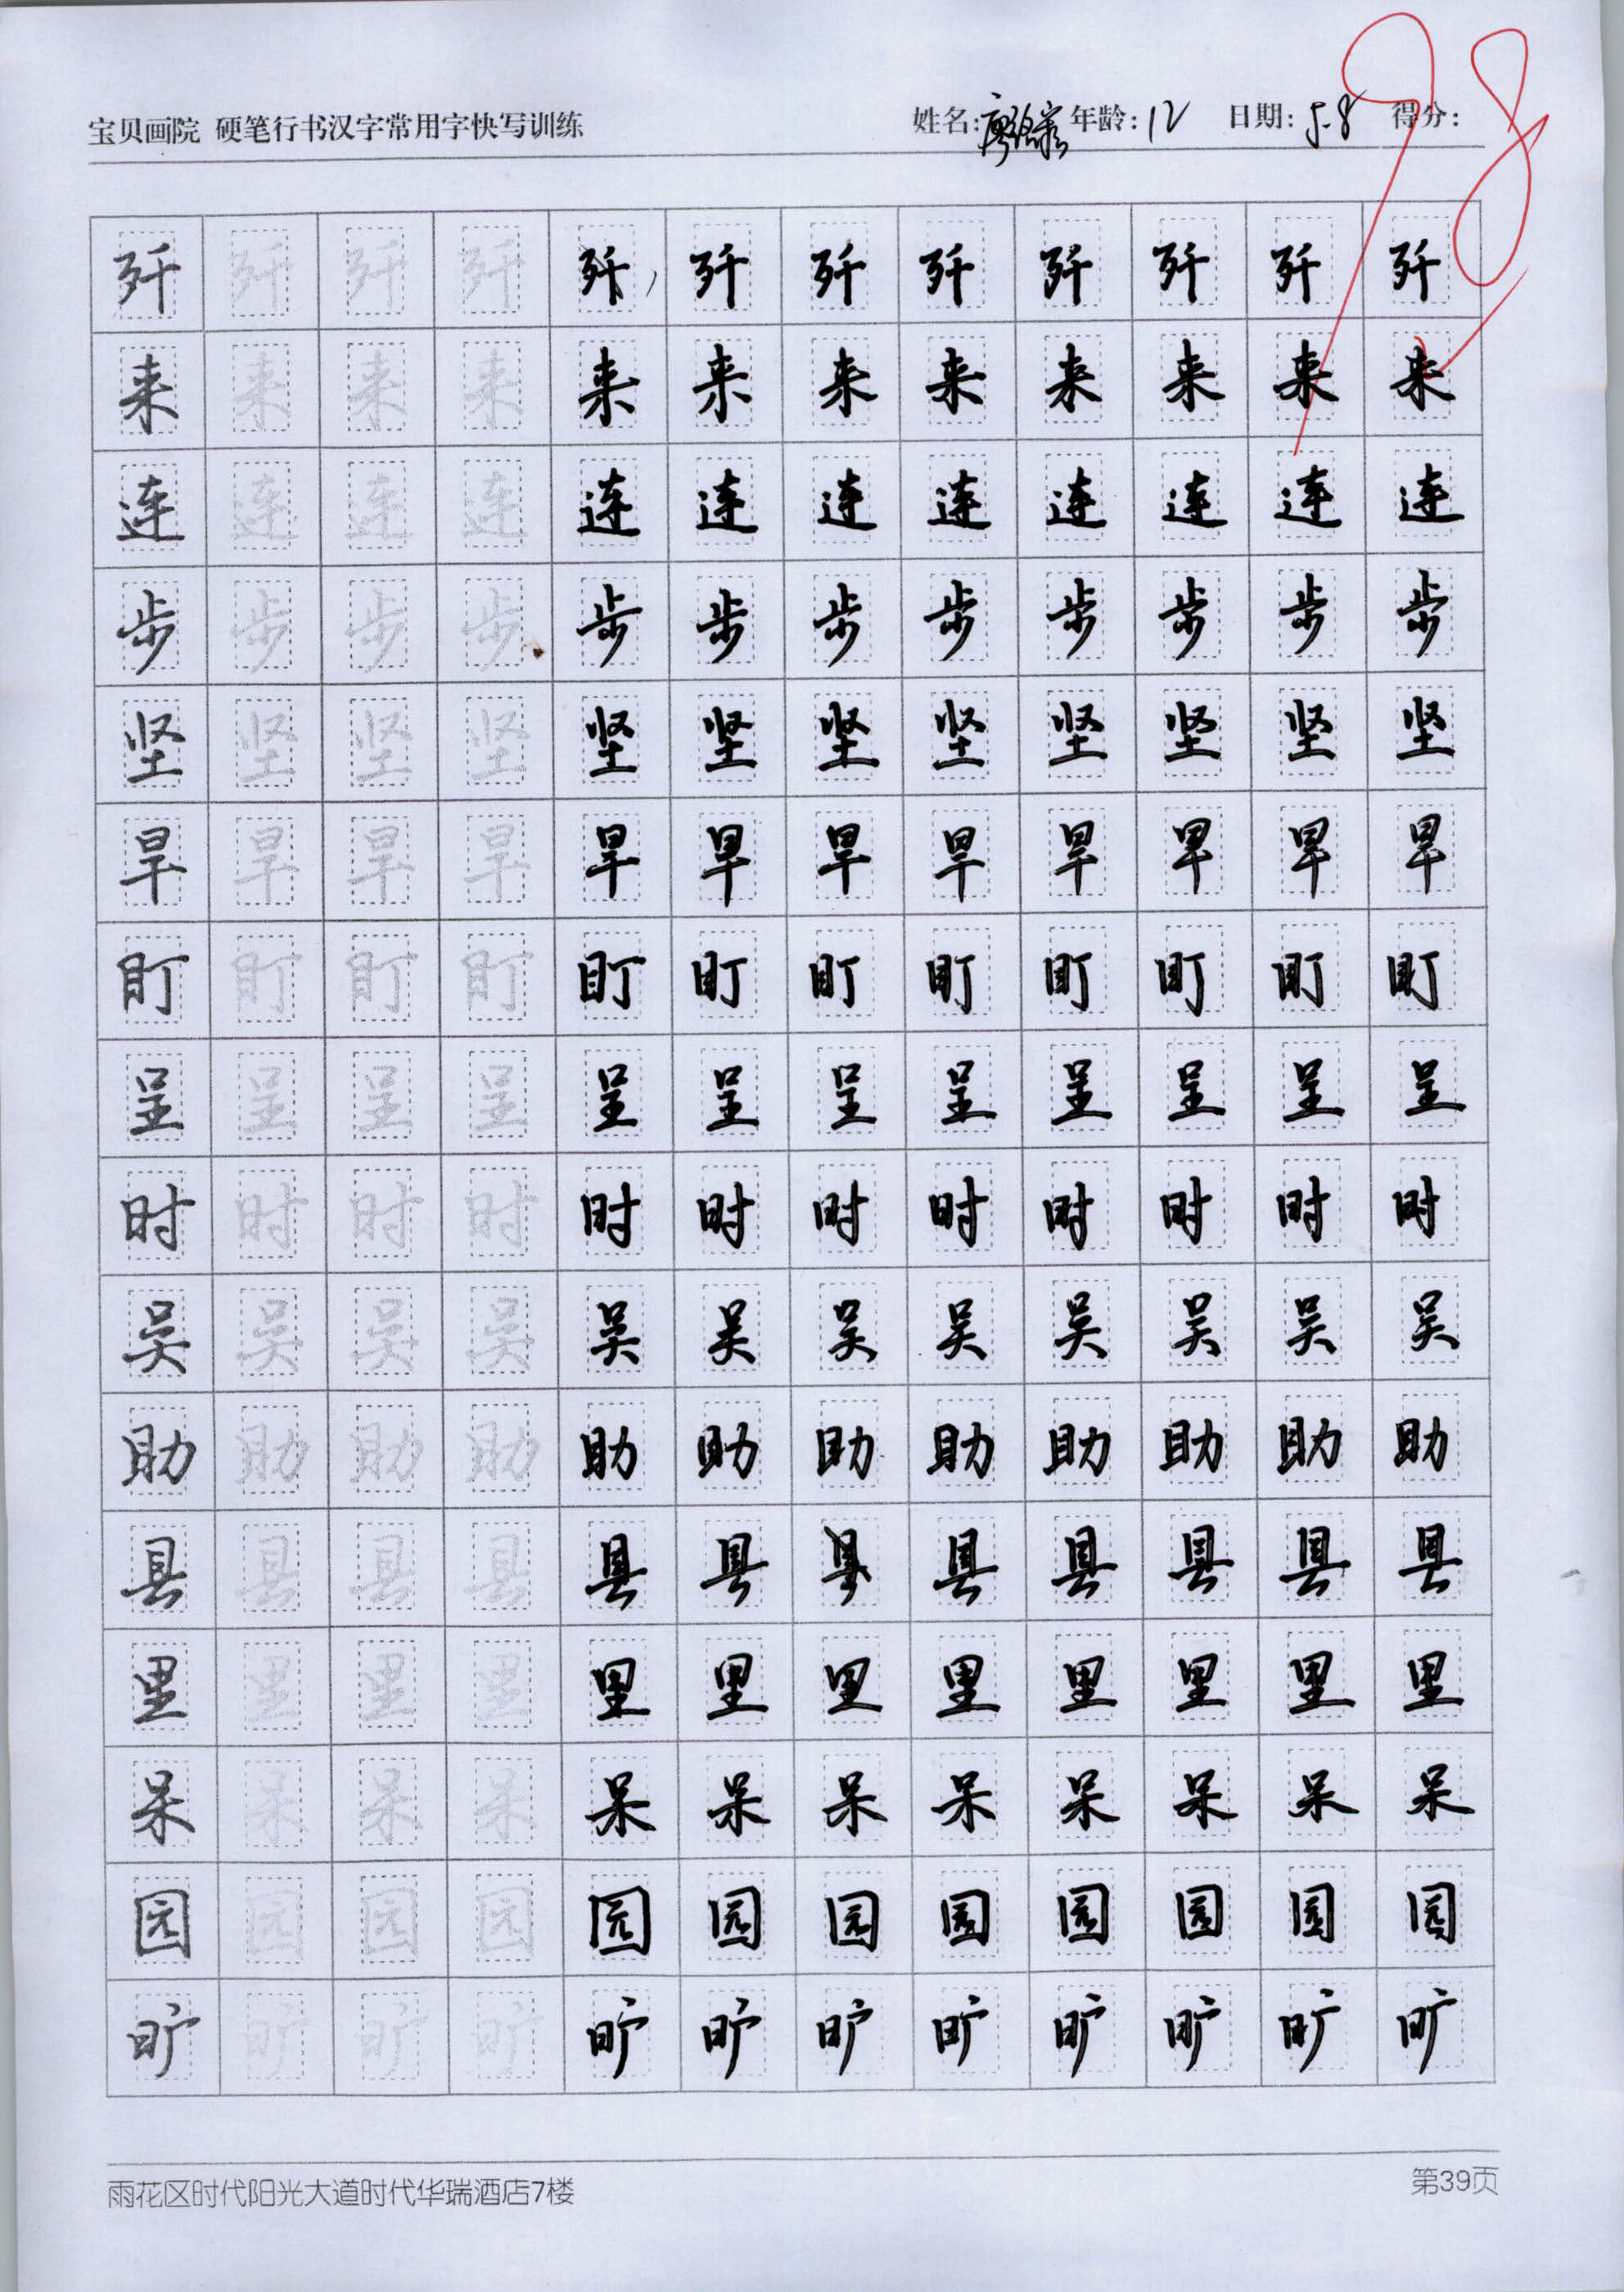 宝贝画院 硬笔行书汉字常用字快写训练 姓名: 年龄:12 日期:5.8 得分:98
歼 歼 歼 歼 歼 歼 歼 歼 歼 歼 歼 歼
来 来 来 来 来 来 来 来 来 来 来 来
连 连 连 连 连 连 连 连 连 连 连 连
步 步 步 步 步 步 步 步 步 步 步 步
坚 坚 坚 坚 坚 坚 坚 坚 坚 坚 坚 坚
旱 旱 旱 旱 旱 旱 旱 旱 旱 旱 旱 旱
盯 盯 盯 盯 盯 盯 盯 盯 盯 盯 盯 盯
呈 呈 呈 呈 呈 呈 呈 呈 呈 呈 呈 呈
时 时 时 时 时 时 时 时 时 时 时 时
吴 吴 吴 吴 吴 吴 吴 吴 吴 吴 吴 吴
助 助 助 助 助 助 助 助 助 助 助 助
县 县 县 县 县 县 县 县 县 县 县 县
里 里 里 里 里 里 里 里 里 里 里 里
呆 呆 呆 呆 呆 呆 呆 呆 呆 呆 呆 呆
园 园 园 园 园 园 园 园 园 园 园 园
旷 旷 旷 旷 旷 旷 旷 旷 旷 旷 旷 旷
雨花区时代阳光大道时代华瑞酒店7楼 第39页